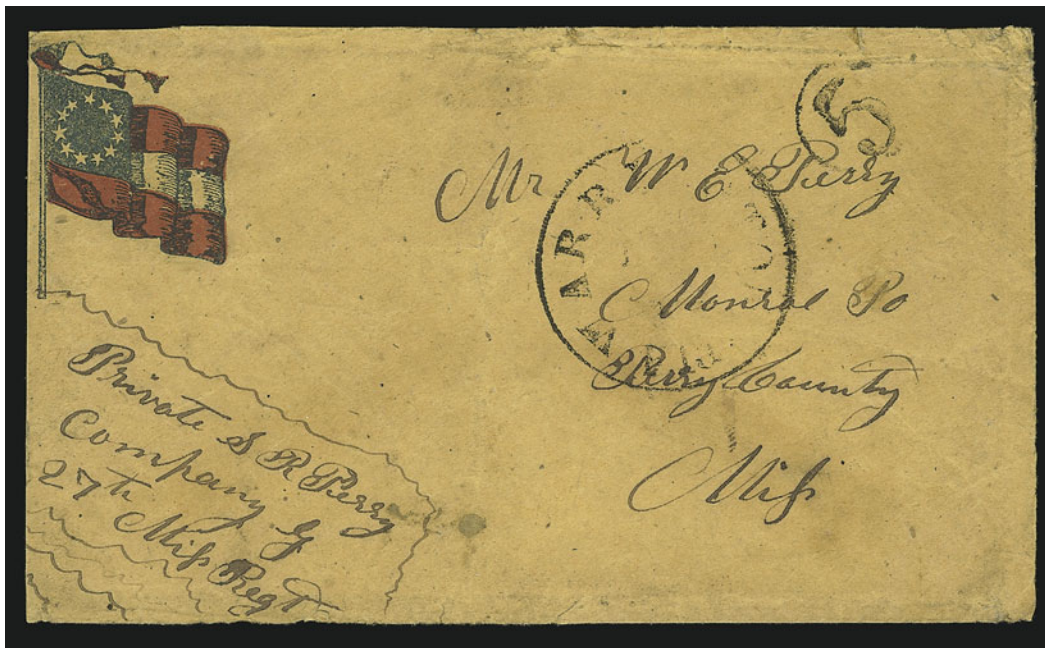 5
Mr W E Perry
WARR
Monroe Po
Perry County
Miſs
Private S R Perry
Company G
27th Miſs Regt